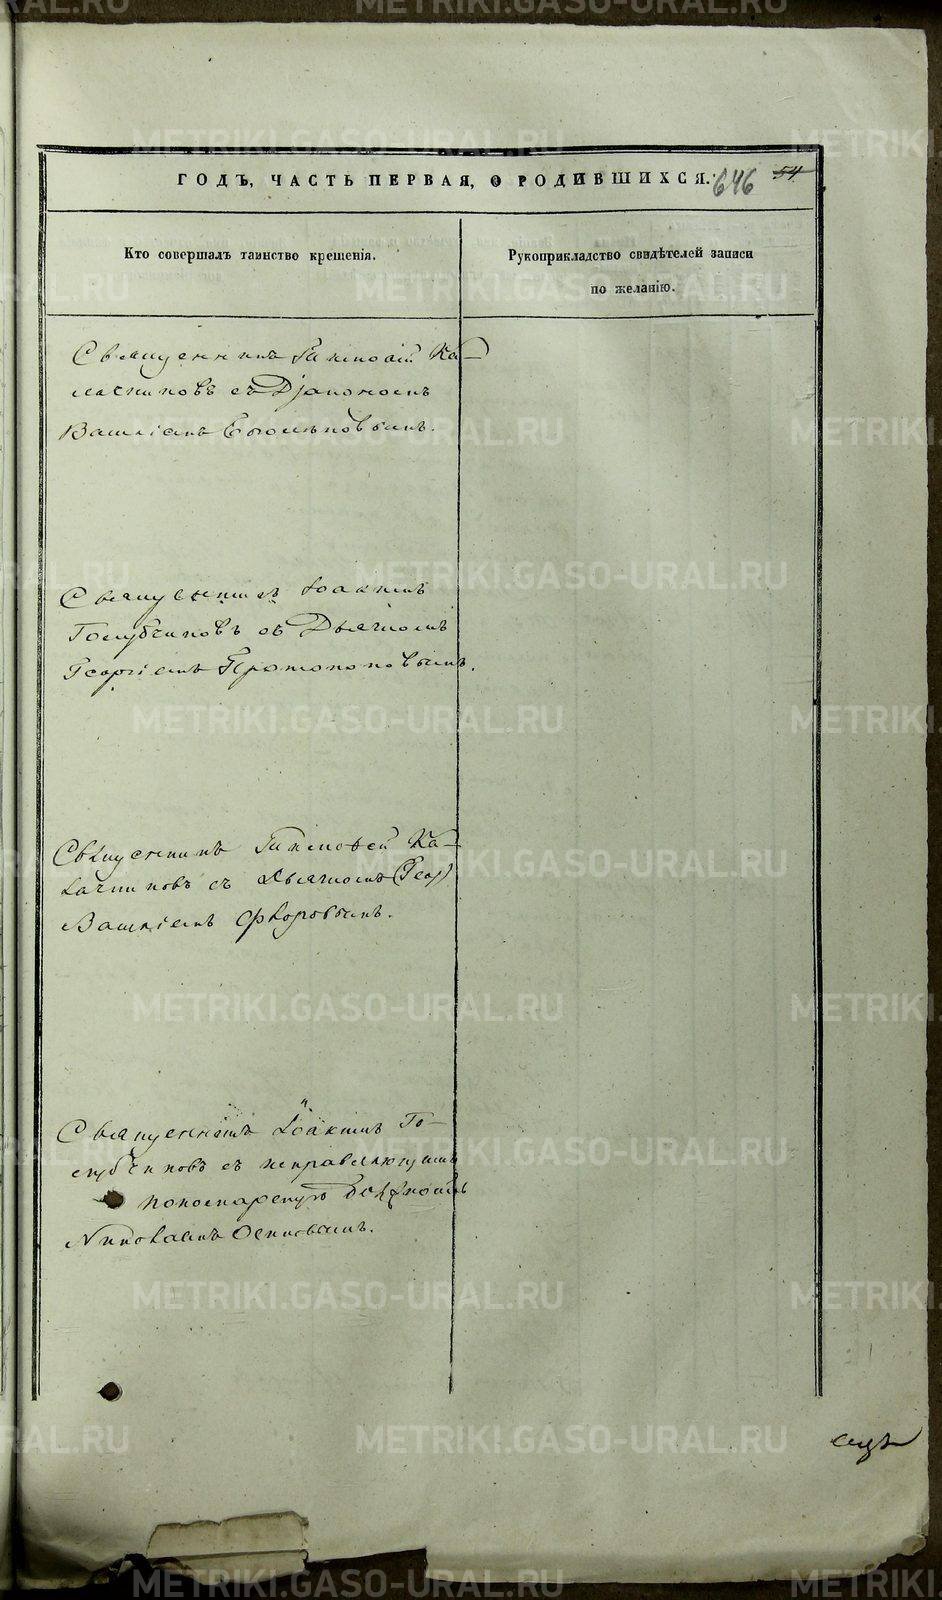 ГОДЪ, ЧАСТЬ ПЕРВАЯ, О РОДИВШИХСЯ. 646 54
Кто совершалъ таинство крещенія.
Рукоприкладство свидѣтелей записи
по желанію.
Священникъ Тимоѳей Ка-
лачниковъ съ Діакономъ
Василіемъ
Священникъ Іоакимъ
Голубчиковъ съ Дьячкомъ
Георгіемъ Протопоповымъ.
Священникъ Тимоѳей Ка-
лачниковъ съ Дьячкомъ (Геор)
Василіемъ Флоровымъ.
Священникъ Іоакимъ Го-
лубчиковъ съ исправляющимъ
пономарскую должность
Николаемъ Осиповымъ.
METRIKI.GASO-URAL.RU